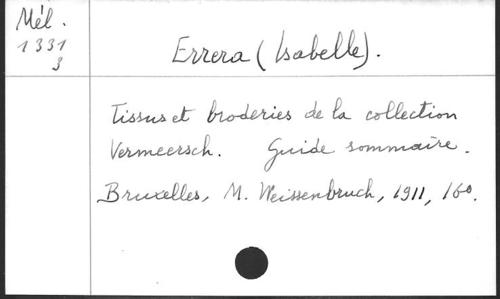 Mél.
1331
3
Errera (Isabelle).
Tissus et broderies de la collection
Vermeersch. Guide sommaire.
Bruxelles, M. Weissenbruch, 1911, 16o.